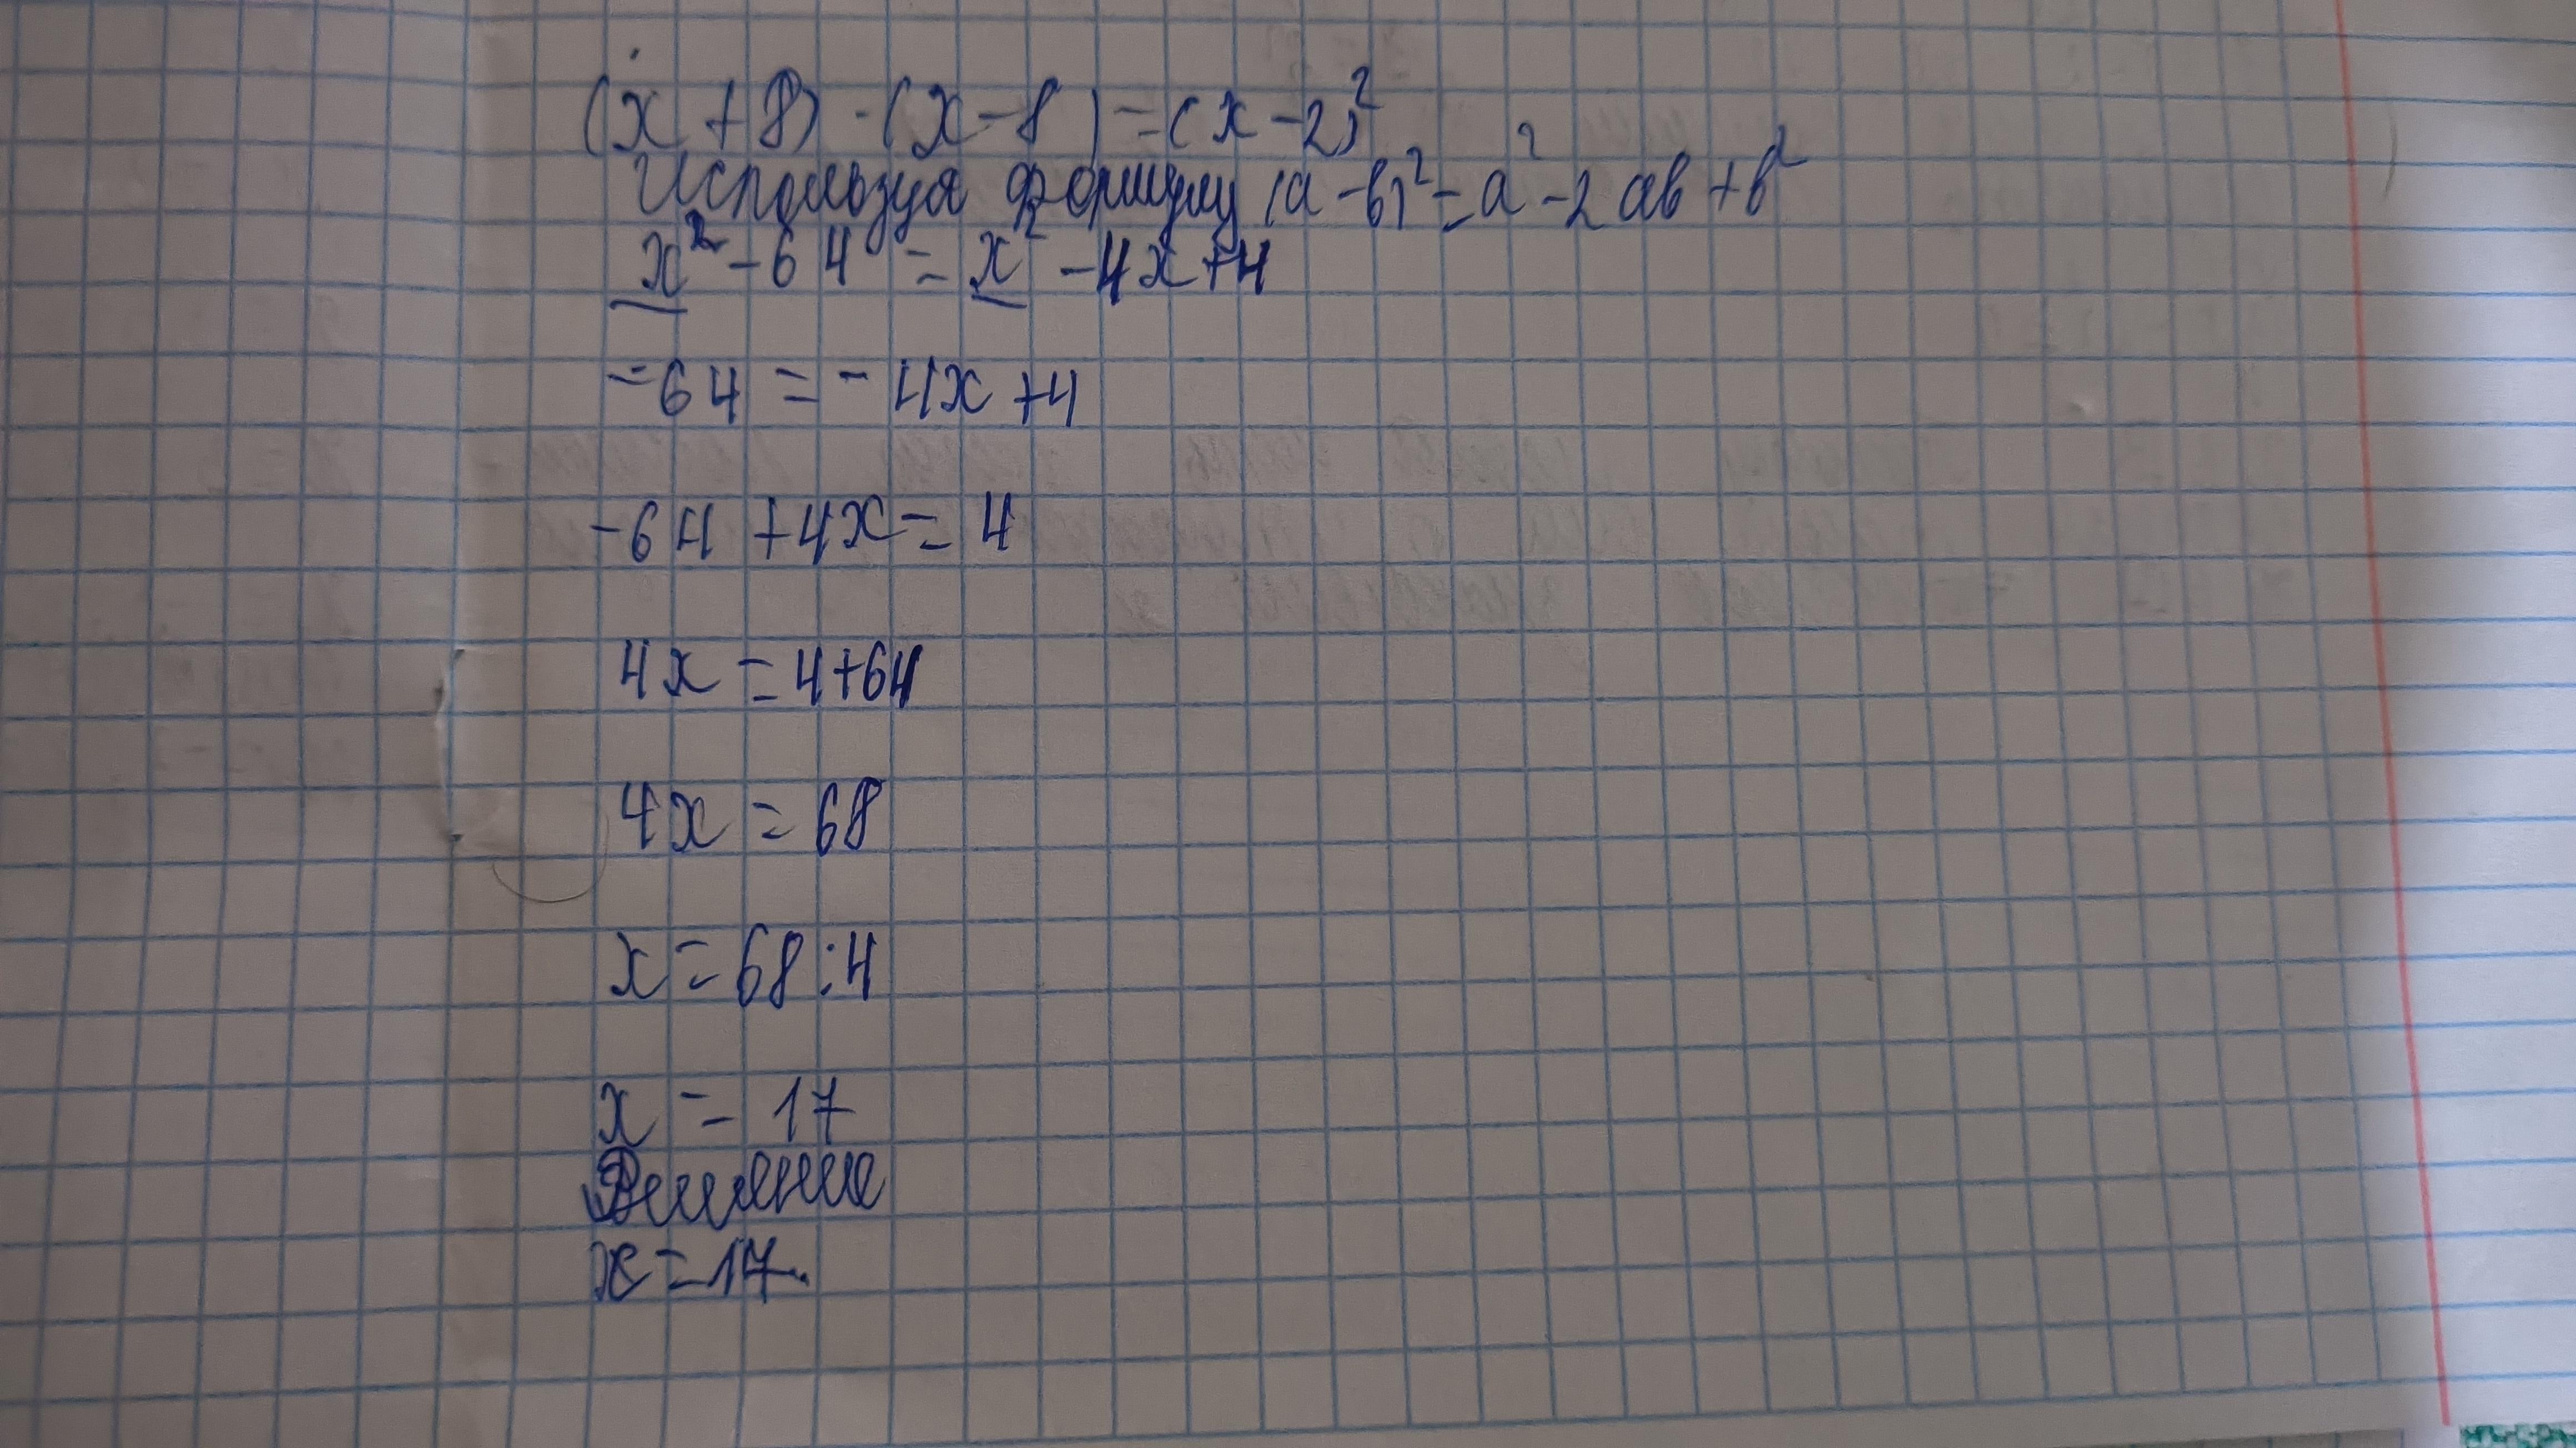 (x + 8) · (x - 8) = (x - 2)²
Используя формулу (a - b)² = a² - 2ab + b²
x² - 64 = x² - 4x + 4
-64 = -4x + 4
-64 + 4x = 4
4x = 4 + 64
4x = 68
x = 68 : 4
x = 17
Решение
x = 17.